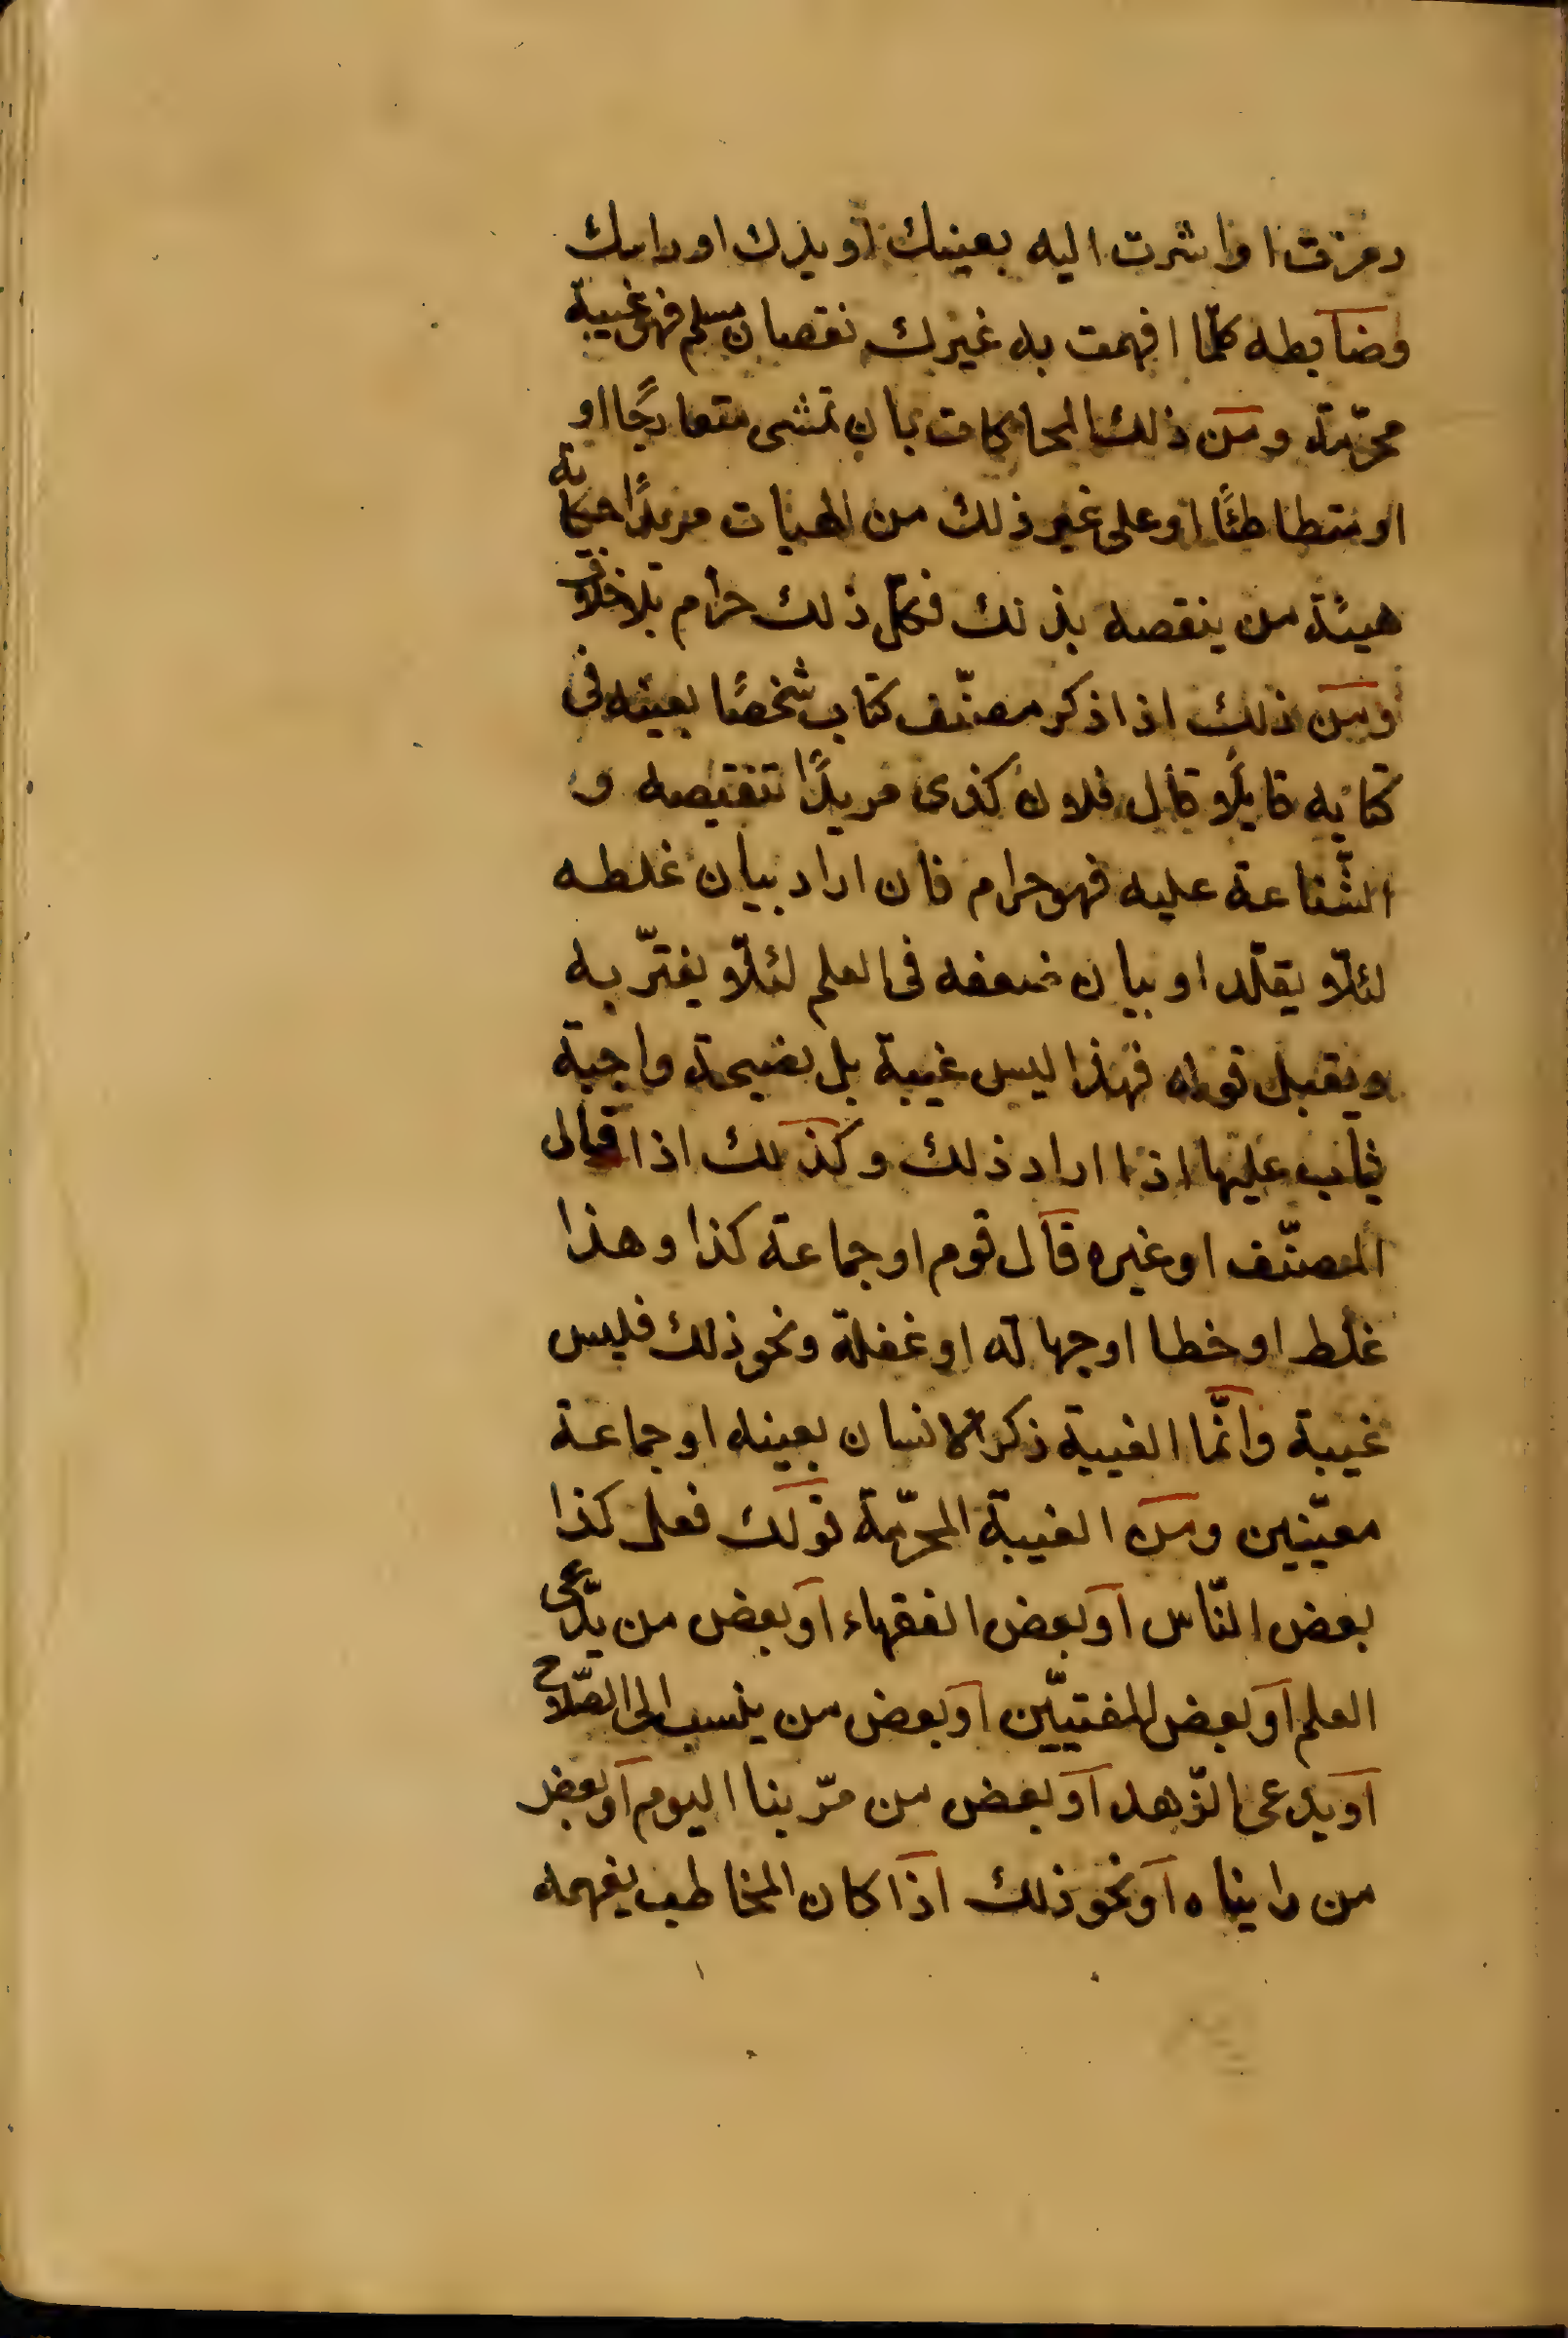 رمزت او اشرت اليه بعينك او يدك او راسك
وضابطه كلّما افهمت به غيرك نقصان مسلم فهى غيبة
محرّمة ومن ذلك المحاكات بان تمشى متعارجًا او
او متطاطئًا او على غير ذلك من الهيات مريدًا حكاية
هيئة من ينقصه بذلك فكلّ ذلك حرام بلا خلاف
ومن ذلك اذا ذكر مصنّف كتاب شخصًا بعينه فى
كتابه قايلًا قال فلان كذى مريدًا تنقيصه و
الشّناعة عليه فهو حرام فان اراد بيان غلطه
لئلّا يقلّد او بيان ضعفه فى العلم لئلّا يغترّ به
ويقبل قوله فهذا ليس غيبة بل نصيحة واجبة
يثاب عليها اذا اراد ذلك وكذلك اذا قال
المصنّف او غيره قال قوم او جماعة كذا وهذا
غلط او خطا او جهالة او غفلة ونحو ذلك فليس
غيبة وانّما الغيبة ذكر الانسان بعينه او جماعة
معيّنين ومن الغيبة المحرّمة قولك فعل كذا
بعض النّاس او بعض الفقهاء او بعض من يدّعى
العلم او بعض المفتيّين او بعض من ينسب الى الصّلاح
او يدعى الزّهد او بعض من مرّ بنا اليوم او بعض
من رايناه او نحو ذلك اذا كان المخاطب يفهمه